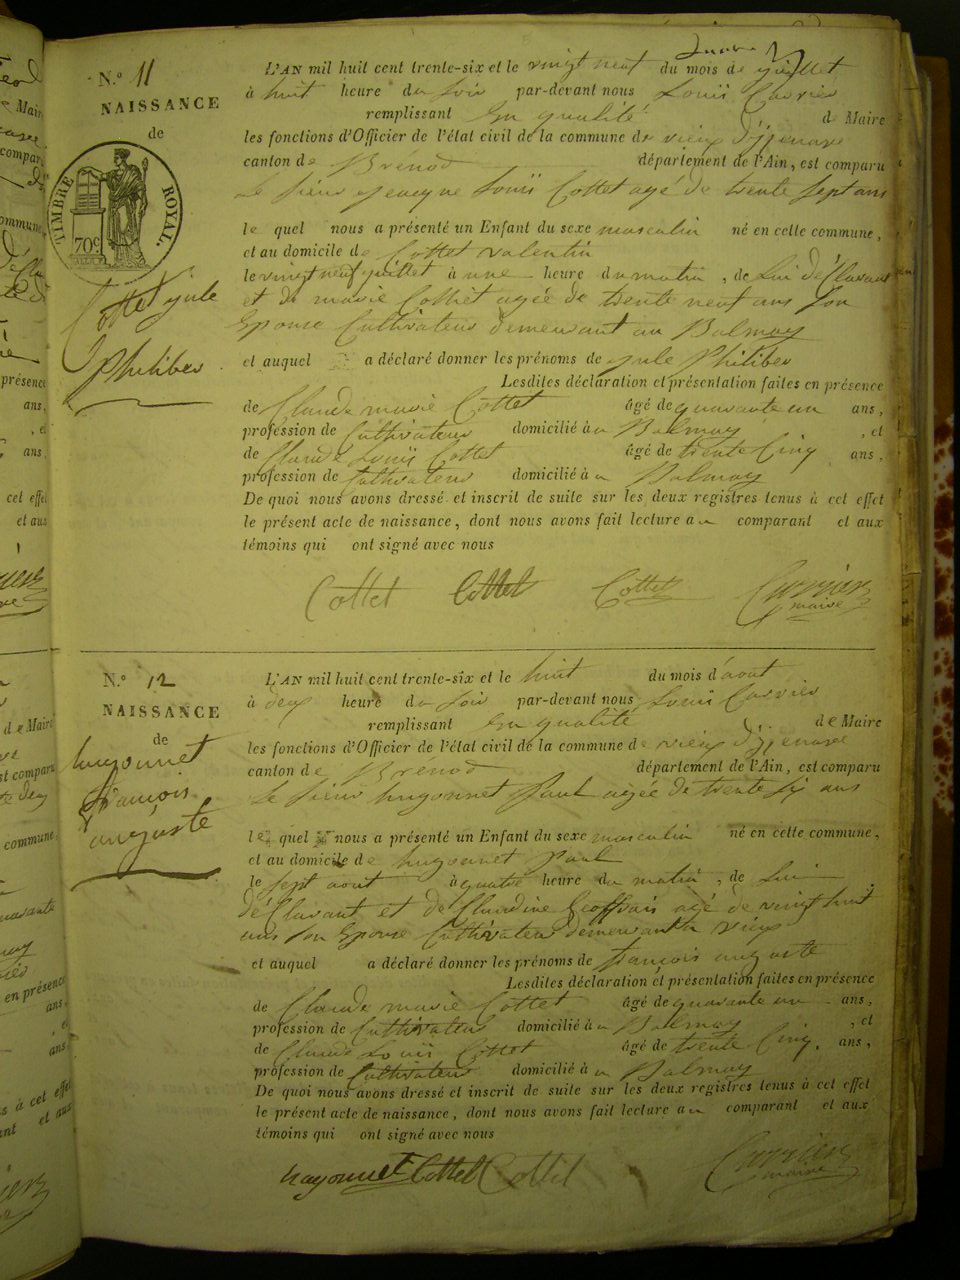 N.º 11
NAISSANCE
de
TIMBRE ROYAL.
70c
Cottet jule
Philiber
L'AN mil huit cent trente-six et le vingt neuf du mois de juillet
à huit heure du soir par-devant nous Louis Carrier
remplissant en qualité de Maire
les fonctions d'Officier de l'état civil de la commune de vieux d'izenave
canton de Brenod département de l'Ain, est comparu
le sieur jeacque Louis Cottet agé de trente sept ans
le quel nous a présenté un Enfant du sexe masculin né en cette commune,
et au domicile de Cottet valentin
le vingt neuf juillet à une heure du matin, de Lui déClarant
et de marie Cottet agée de trente neuf ans son
Epouse Cultivateur demeurant au Balmay
et auquel a déclaré donner les prénoms de jule Philiber
Lesdites déclaration et présentation faites en présence
de Claude marie Cottet âgé de quarante un ans,
profession de Cultivateur domicilié à u Balmay, et
de Claude Louis Cottet âgé de trente Cinq ans,
profession de Cultivateur domicilié à u Balmay
De quoi nous avons dressé et inscrit de suite sur les deux registres tenus à cet effet
le présent acte de naissance, dont nous avons fait lecture au comparant et aux
témoins qui ont signé avec nous
Cottet Cottet Cottet Carrier
maire
N.º 12
NAISSANCE
de
hugonnet
françois
auguste
L'AN mil huit cent trente-six et le huit du mois d'août
à deux heure du soir par-devant nous Louis Carrier
remplissant en qualité de Maire
les fonctions d'Officier de l'état civil de la commune de vieux d'izenave
canton de Brenod département de l'Ain, est comparu
le sieur hugonnet Paul agée de trente six ans
le quel nous a présenté un Enfant du sexe masculin né en cette commune,
et au domicile de hugonnet Paul
le sept aout à quatre heure du matin, de Lui
déClarant et de Claudine Geoffrais agé de vingt huit
ans son Epouse Cultivateur demeurant a vieux
et auquel a déclaré donner les prénoms de françois auguste
Lesdites déclaration et présentation faites en présence
de Claude marie Cottet âgé de quarante un ans,
profession de Cultivateur domicilié à u Balmay, et
de Claude Louis Cottet âgé de trente Cinq, ans,
profession de Cultivateur domicilié à u Balmay
De quoi nous avons dressé et inscrit de suite sur les deux registres tenus à cet effet
le présent acte de naissance, dont nous avons fait lecture au comparant et aux
témoins qui ont signé avec nous
hugonnet Cottet Cottet Carrier
maire